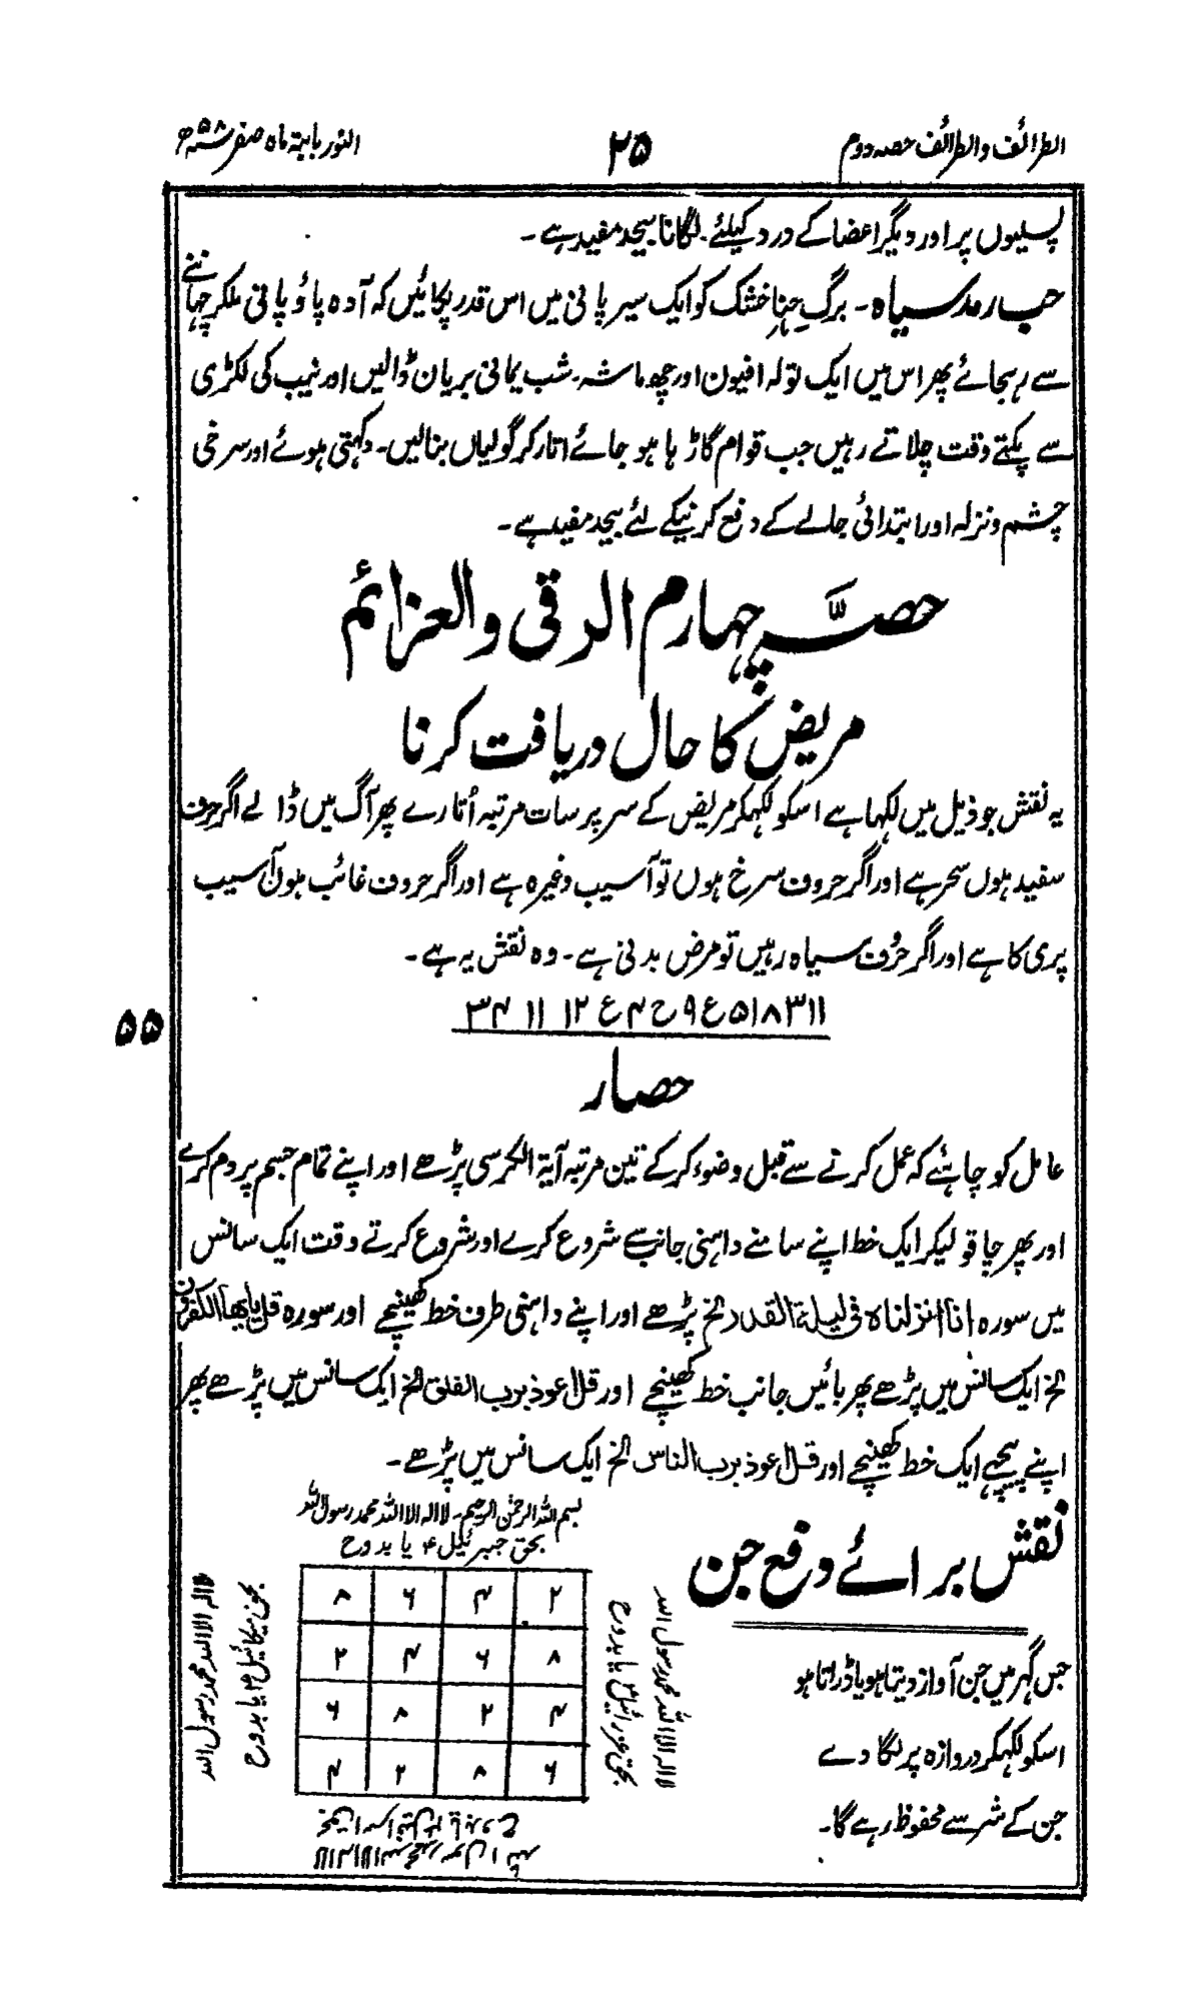 الطرائف والظرائف حصہ دوم
۲۵
النور بابتہ ماہ صفر ۵۸ھ
پسلیوں پر اور دیگر اعضا کے درد کیلئے لگانا بیحد مفید ہے۔
حب رمد سیاہ۔ برگِ حنا خشک کو ایک سیر پانی میں اس قدر پکائیں کہ آدہ پاؤ پانی ملکر چہاننے
سے رہجائے پھر اس میں ایک تولہ افیون اور چھ ماشہ شب یمانی بریان ڈالیں اور نیب کی لکڑی
سے پکتے وقت چلاتے رہیں جب قوام گاڑہا ہو جائے اتار کر گولیاں بنالیں۔ دکہتی ہوئے اور سرخی
چشم و نزلہ اور ابتدائی جالے کے دفع کرنیکے لئے بیحد مفید ہے۔
حصہ چہارم الرقی والعزائم
مریض کا حال دریافت کرنا
یہ نقش جو ذیل میں لکہا ہے اسکو لکہکر مریض کے سر پر سات مرتبہ اُتارے پھر آگ میں ڈالے اگر حروف
سفید ہوں سحر ہے اور اگر حروف سرخ ہوں تو آسیب وغیرہ ہے اور اگر حروف غائب ہوں آسیب
پری کا ہے اور اگر حروف سیاہ رہیں تو مرض بدنی ہے۔ وہ نقش یہ ہے۔
۳۴ ۱۱ ۱۲ ع ۴ ح ۹ ع ۵۱۸۳۱۱
۵۵
حصار
عامل کو چاہئے کہ عمل کرنے سے قبل وضوء کرکے تین مرتبہ آیۃ الکرسی پڑھے اور اپنے تمام جسم پر دم کرے
اور پھر چاقو لیکر ایک خط اپنے سامنے داہنی جانب سے شروع کرے اور شروع کرتے وقت ایک سانس
میں سورہ انا انزلناہ فی لیلۃ القدر الخ پڑھے اور اپنے داہنی طرف خط کھینچے اور سورہ قل یایھا الکفرون
الخ ایک سانس میں پڑھے پھر بائیں جانب خط کھینچے اور قل اعوذ برب الفلق الخ ایک سانس میں پڑھے پھر
اپنے پیچہے ایک خط کھینچے اور قل اعوذ برب الناس الخ ایک سانس میں پڑھے۔
نقش برائے دفع جن
جس گہر میں جن آواز دیتا ہو یا ڈراتا ہو
اسکو لکہکر دروازہ پر لگا دے
جن کے شر سے محفوظ رہے گا۔
بسم اللہ الرحمٰن الرحیم۔ لا الہ الا اللہ محمد رسول اللہ
بحق جبرئیل ؑ یا بدوح
لا الہ الا اللہ محمد رسول اللہ
بحق عزرائیل ؑ یا بدوح
۲ ۴ ۶ ۸
۸ ۶ ۴ ۲
۴ ۲ ۸ ۶
۶ ۸ ۲ ۴
بحق میکائیل ؑ یا بدوح
لا الہ الا اللہ محمد رسول اللہ
بحق اسرافیل ؑ یا بدوح
لا الہ الا اللہ محمد رسول اللہ